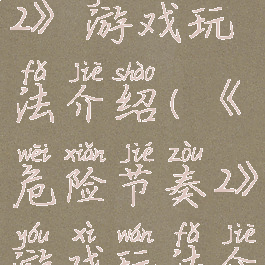 2》游戏玩
fǎ jiè shào
法介绍(《
wēi xiǎn jié zòu
危险节奏2》
yóu xì wán fǎ jiè
游戏玩法介